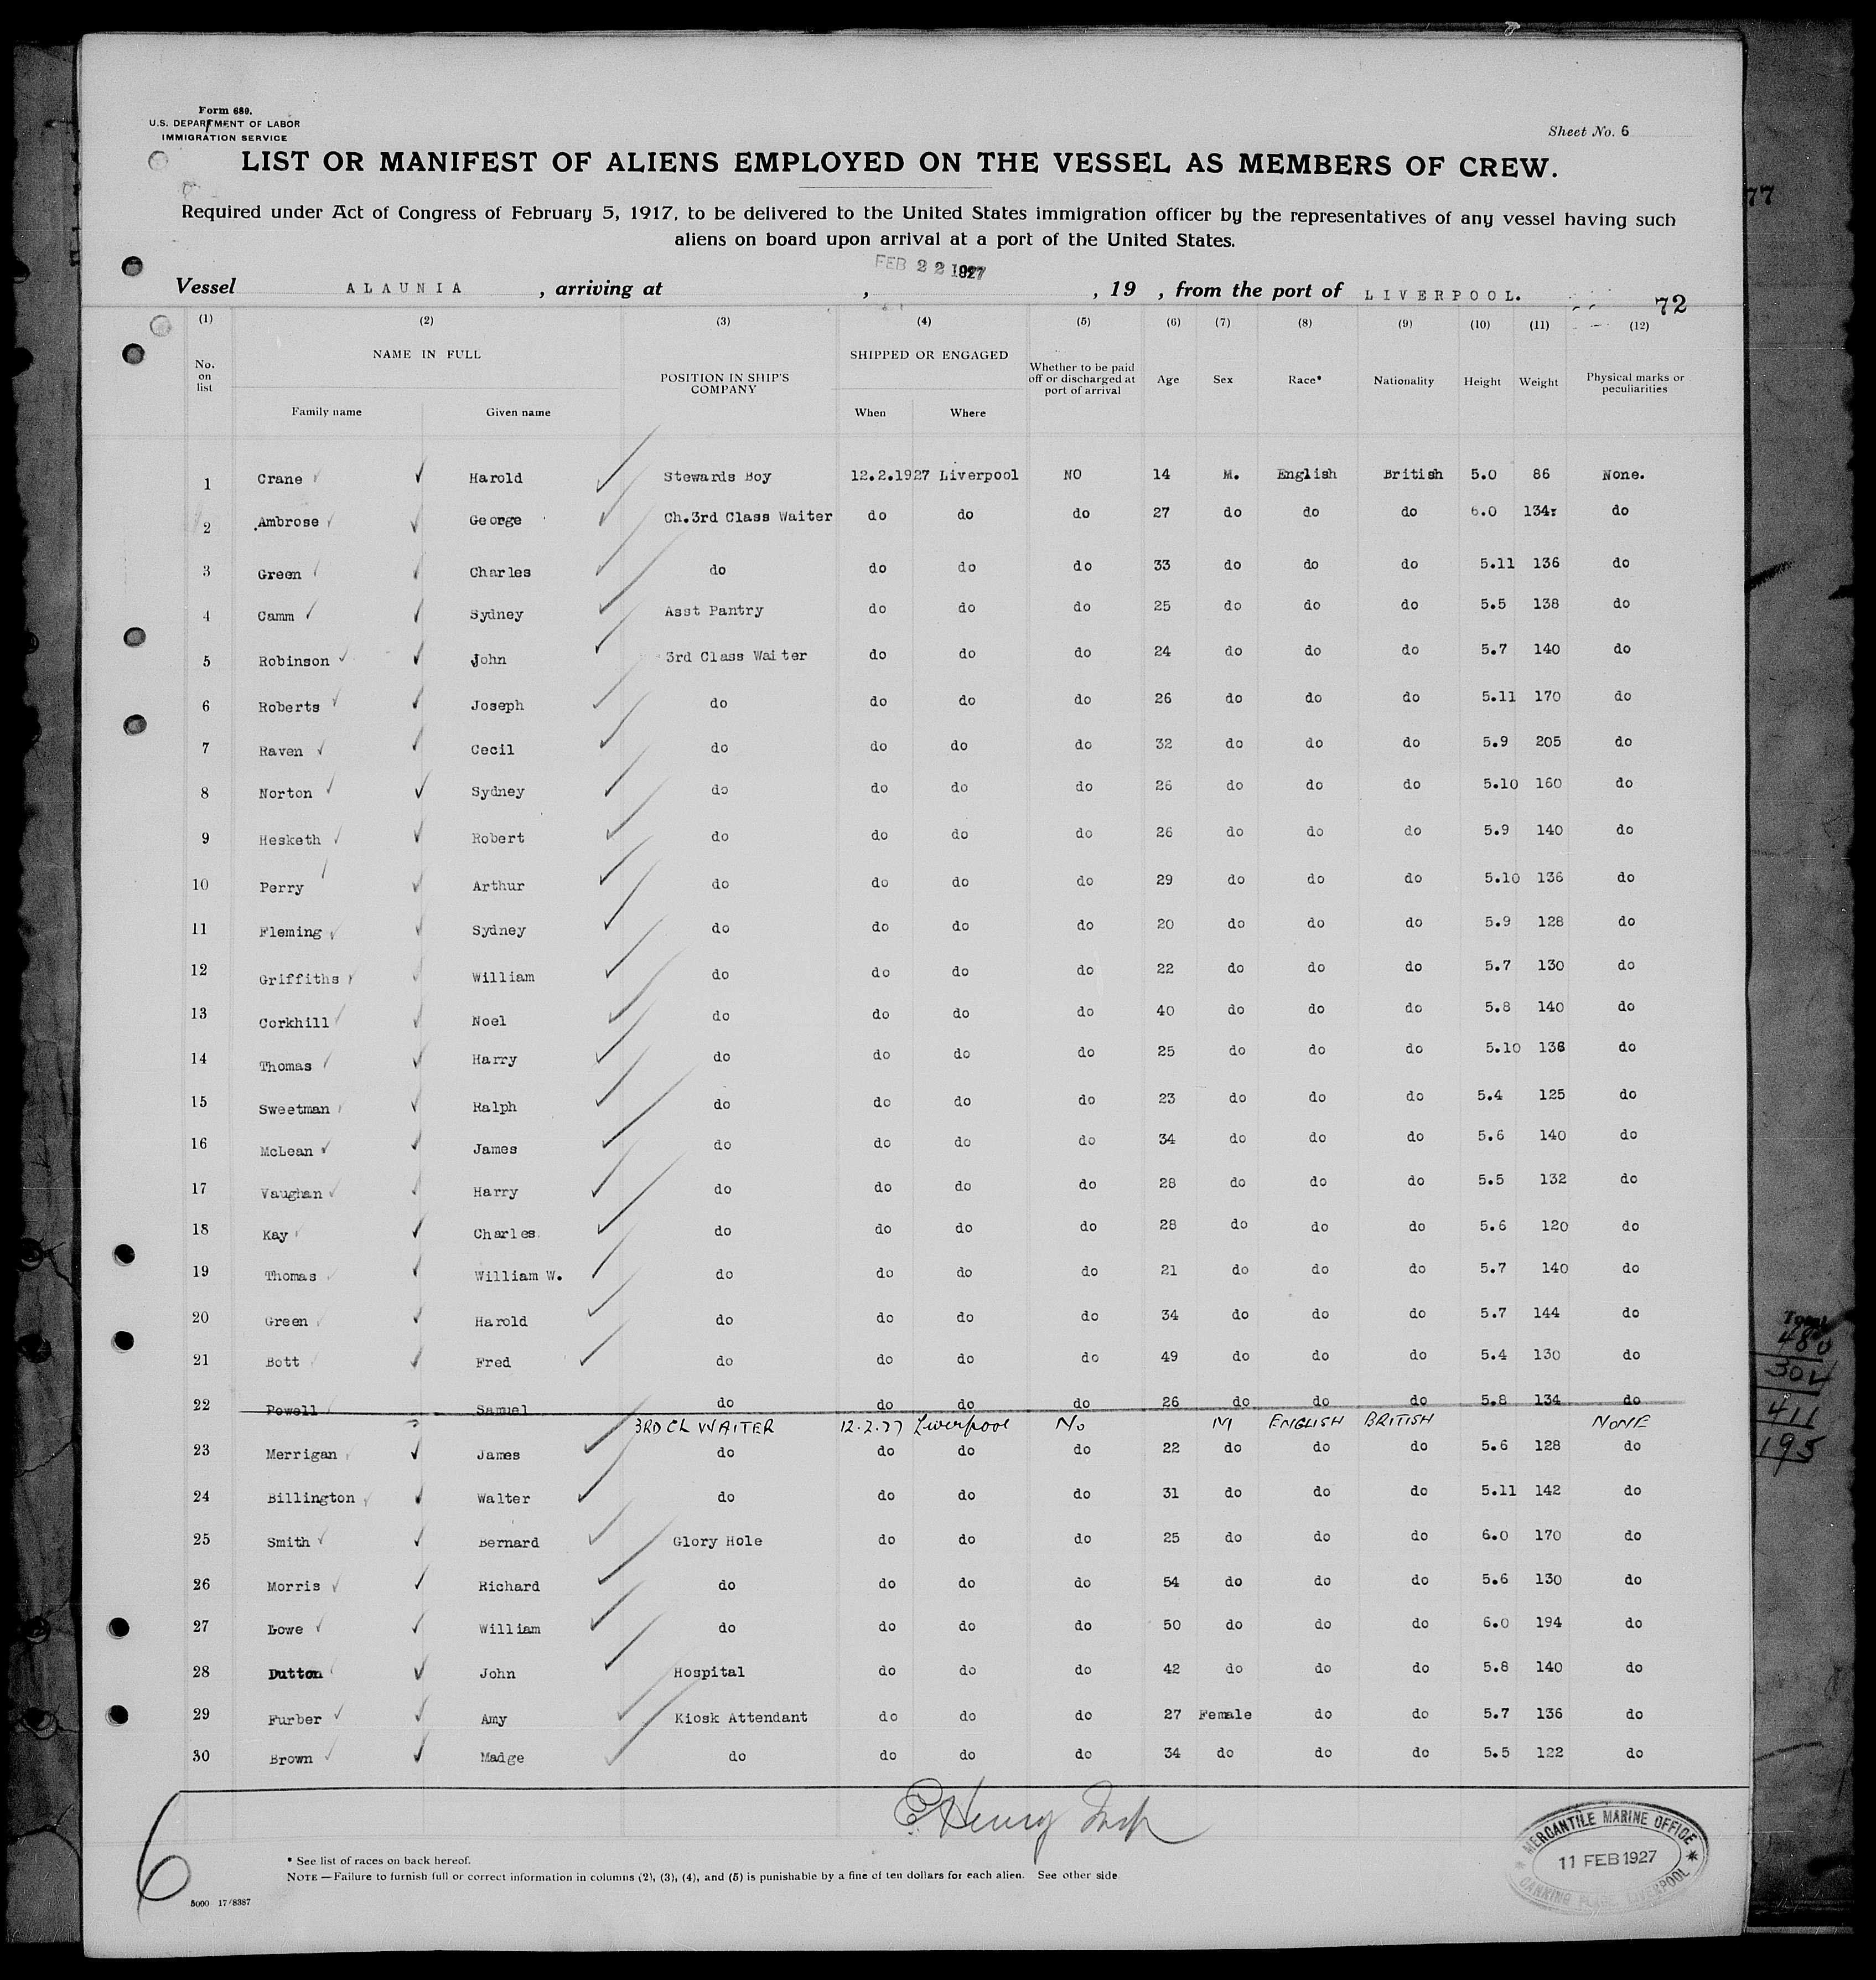 Form 680.
U.S. DEPARTMENT OF LABOR
IMMIGRATION SERVICE
Sheet No. 6
LIST OR MANIFEST OF ALIENS EMPLOYED ON THE VESSEL AS MEMBERS OF CREW.
Required under Act of Congress of February 5, 1917, to be delivered to the United States immigration officer by the representatives of any vessel having such
aliens on board upon arrival at a port of the United States.
FEB 22 1927
Vessel ALAUNIA, arriving at , , 19 , from the port of LIVERPOOL.
72
(1) (2) (3) (4) (5) (6) (7) (8) (9) (10) (11) (12)
No. on list NAME IN FULL Family name Given name POSITION IN SHIP'S COMPANY SHIPPED OR ENGAGED When Where Whether to be paid off or discharged at port of arrival Age Sex Race* Nationality Height Weight Physical marks or peculiarities
1 Crane Harold Stewards Boy 12.2.1927 Liverpool NO 14 M. English British 5.0 86 None.
2 Ambrose George Ch.3rd Class Waiter do do do 27 do do do 6.0 134 do
3 Green Charles do do do do 33 do do do 5.11 136 do
4 Camm Sydney Asst Pantry do do do 25 do do do 5.5 138 do
5 Robinson John 3rd Class Waiter do do do 24 do do do 5.7 140 do
6 Roberts Joseph do do do do 26 do do do 5.11 170 do
7 Raven Cecil do do do do 32 do do do 5.9 205 do
8 Norton Sydney do do do do 26 do do do 5.10 160 do
9 Hesketh Robert do do do do 26 do do do 5.9 140 do
10 Perry Arthur do do do do 29 do do do 5.10 136 do
11 Fleming Sydney do do do do 20 do do do 5.9 128 do
12 Griffiths William do do do do 22 do do do 5.7 130 do
13 Corkhill Noel do do do do 40 do do do 5.8 140 do
14 Thomas Harry do do do do 25 do do do 5.10 136 do
15 Sweetman Ralph do do do do 23 do do do 5.4 125 do
16 McLean James do do do do 34 do do do 5.6 140 do
17 Vaughan Harry do do do do 28 do do do 5.5 132 do
18 Kay Charles do do do do 28 do do do 5.6 120 do
19 Thomas William W. do do do do 21 do do do 5.7 140 do
20 Green Harold do do do do 34 do do do 5.7 144 do
21 Bott Fred do do do do 49 do do do 5.4 130 do
22 Powell Samuel do do do do 26 do do do 5.8 134 do
3RD CL WAITER 12.2.27 Liverpool No M ENGLISH BRITISH NONE
23 Merrigan James do do do do 22 do do do 5.6 128 do
24 Billington Walter do do do do 31 do do do 5.11 142 do
25 Smith Bernard Glory Hole do do do 25 do do do 6.0 170 do
26 Morris Richard do do do do 54 do do do 5.6 130 do
27 Lowe William do do do do 50 do do do 6.0 194 do
28 Dutton John Hospital do do do 42 do do do 5.8 140 do
29 Furber Amy Kiosk Attendant do do do 27 Female do do 5.7 136 do
30 Brown Madge do do do do 34 do do do 5.5 122 do
Henry
6
* See list of races on back hereof.
NOTE.—Failure to furnish full or correct information in columns (2), (3), (4), and (5) is punishable by a fine of ten dollars for each alien. See other side
5000 17/8387
MERCANTILE MARINE OFFICE
11 FEB 1927
CANNING PLACE LIVERPOOL
77
Total
480
304
411
195